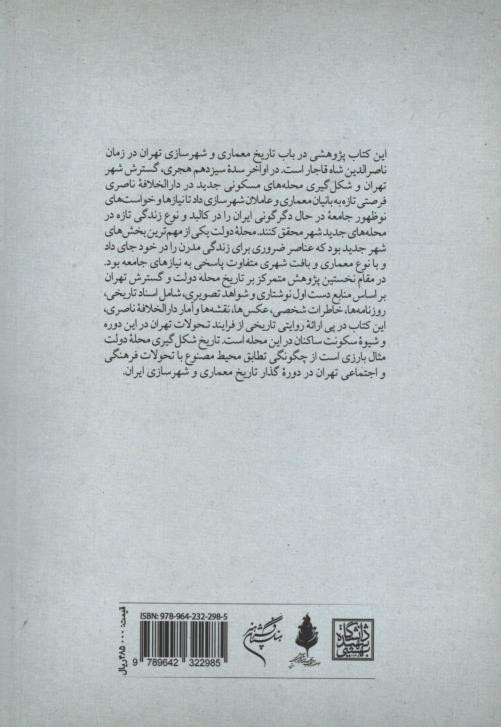 این کتاب پژوهشی در باب تاریخ معماری و شهرسازی تهران در زمان
ناصرالدین شاه قاجار است. در اواخر سدهٔ سیزدهم هجری، گسترش شهر
تهران و شکل‌گیری محله‌های مسکونی جدید در دارالخلافهٔ ناصری
فرصتی تازه به بانیان معماری و عاملان شهرسازی داد تا نیازها و خواست‌های
نوظهور جامعهٔ در حال دگرگونی ایران را در کالبد و نوع زندگی تازه در
محله‌های جدید شهر محقق کنند. محلهٔ دولت یکی از مهم‌ترین بخش‌های
شهر جدید بود که عناصر ضروری برای زندگی مدرن را در خود جای داد
و با نوع معماری و بافت شهری متفاوت پاسخی به نیازهای جامعه بود.
در مقام نخستین پژوهش متمرکز بر تاریخ محله دولت و گسترش تهران
بر اساس منابع دست اول نوشتاری و شواهد تصویری، شامل اسناد تاریخی،
روزنامه‌ها، خاطرات شخصی، عکس‌ها، نقشه‌ها و آمار دارالخلافهٔ ناصری،
این کتاب در پی ارائهٔ روایتی تاریخی از فرایند تحولات تهران در این دوره
و شیوهٔ سکونت ساکنان در این محله است. تاریخ شکل‌گیری محلهٔ دولت
مثال بارزی است از چگونگی تطابق محیط مصنوع با تحولات فرهنگی
و اجتماعی تهران در دورهٔ گذار تاریخ معماری و شهرسازی ایران.
دانشگاه شهید بهشتی
ISBN: 978-964-232-298-5
9 789642 322985
قیمت: ۲۸۵٠٠٠ ریال